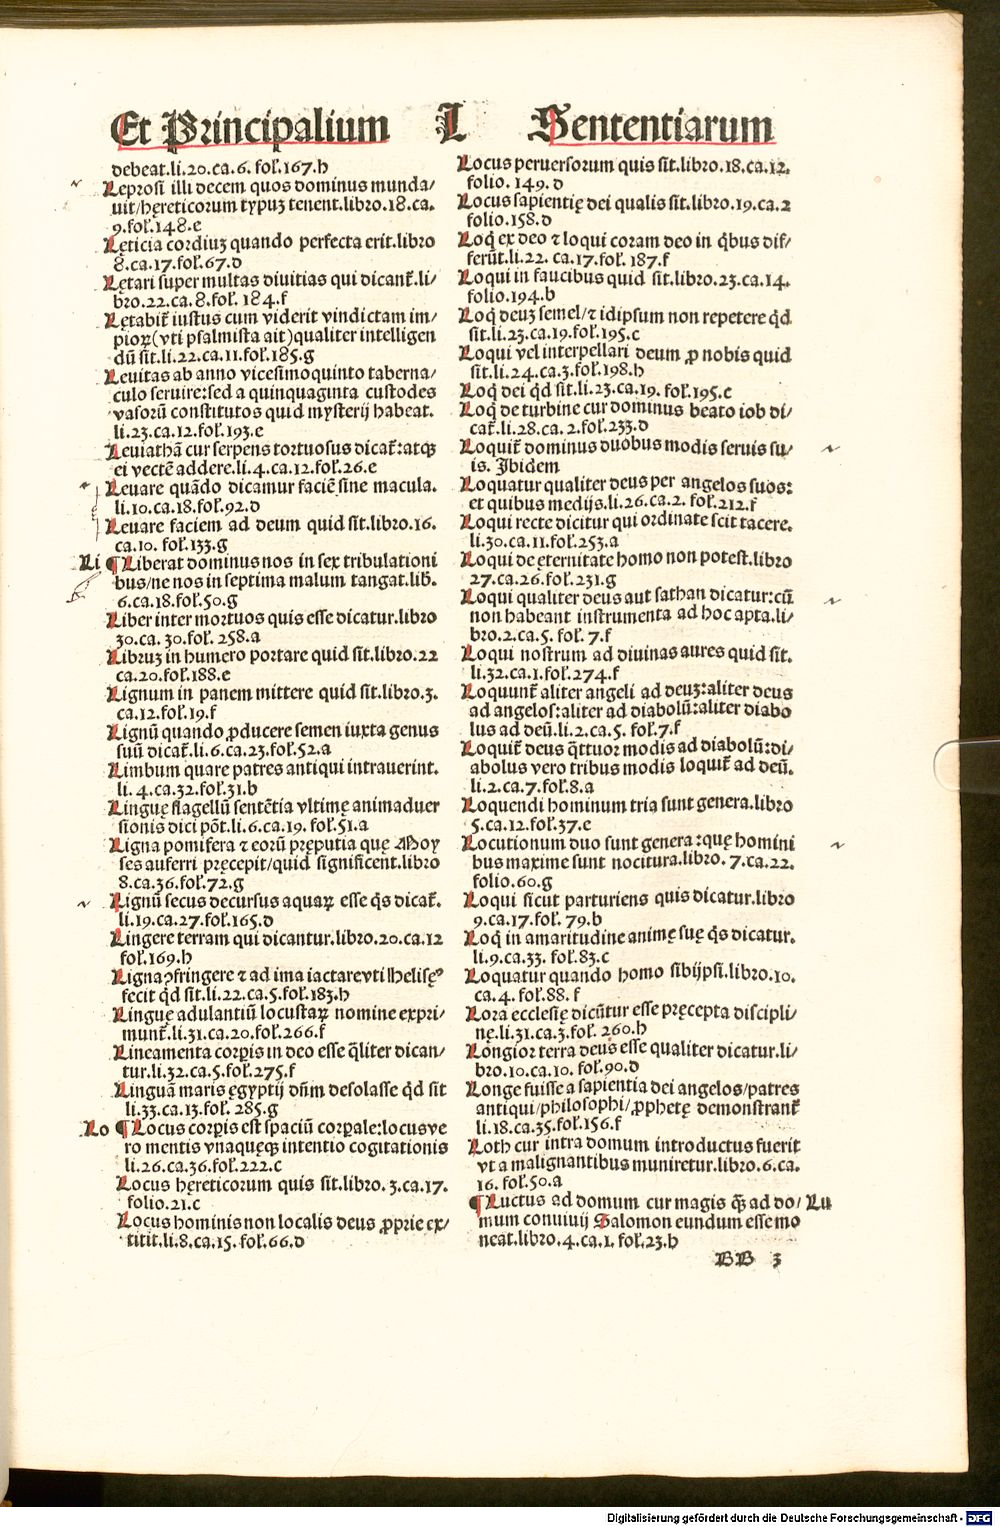 Et Principalium L Sententiarum
debeat.li.20.ca.6.fol.167.h
Leprosi illi decem quos dominus munda/
uit/hęreticorum typuʒ tenent.libro.18.ca.
9.fol.148.e
Lęticia cordiuʒ quando perfecta erit.libro
8.ca.17.fol.67.d
Lętari super multas diuitias qui dicant᷑.li/
bro.22.ca.8.fol.184.f
Lętabit᷑ iustus cum viderit vindictam im/
pioꝝ(vti psalmista ait)qualiter intelligen
dū sit.li.22.ca.11.fol.185.g
Leuitas ab anno vicesimoquinto taberna/
culo seruire:sed a quinquaginta custodes
vasorū constitutos quid mysterij habeat.
li.23.ca.12.fol.193.e
Leuiathā cur serpens tortuosus dicat᷑:atqʒ
ei vectē addere.li.4.ca.12.fol.26.e
Leuare quādo dicamur faciē sine macula.
li.10.ca.18.fol.92.d
Leuare faciem ad deum quid sit.libro.16.
ca.10.fol.133.g
Li ¶ Liberat dominus nos in sex tribulationi
bus/ne nos in septima malum tangat.lib.
6.ca.18.fol.50.g
Liber inter mortuos quis esse dicatur.libro
30.ca.30.fol.258.a
Libruʒ in humero portare quid sit.libro.22
ca.20.fol.188.e
Lignum in panem mittere quid sit.libro.3.
ca.12.fol.19.f
Lignū quando ꝓducere semen iuxta genus
suū dicat᷑.li.6.ca.23.fol.52.a
Limbum quare patres antiqui intrauerint.
li.4.ca.32.fol.31.b
Linguę flagellū sentētia vltimę animaduer
sionis dici pōt.li.6.ca.19.fol.51.a
Ligna pomifera ⁊ eorū pręputia quę Moy
ses auferri pręcepit/quid significent.libro
8.ca.36.fol.72.g
Lignū secus decursus aquaꝝ esse q̄s dicat᷑.
li.19.ca.27.fol.165.d
Lingere terram qui dicantur.libro.20.ca.12
fol.169.h
Ligna ꝯfringere ⁊ ad ima iactare vti Helisęꝰ
fecit qd̄ sit.li.22.ca.5.fol.183.h
Linguę adulantiū locustaꝝ nomine expri/
munt᷑.li.31.ca.20.fol.266.f
Lineamenta corꝑis in deo esse q̄liter dican/
tur.li.32.ca.5.fol.275.f
Linguā maris ęgyptij dn̄m desolasse qd̄ sit
li.33.ca.13.fol.285.g
Lo ¶ Locus corꝑis est spaciū corꝑale:locus ve
ro mentis vnaquęqʒ intentio cogitationis
li.26.ca.36.fol.222.c
Locus hęreticorum quis sit.libro.3.ca.17.
folio.21.c
Locus hominis non localis deus ꝓprie ex/
titit.li.8.ca.15.fol.66.d
Locus peruersorum quis sit.libro.18.ca.12.
folio.149.d
Locus sapientię dei qualis sit.libro.19.ca.2
folio.158.d
Loq̄ ex deo ⁊ loqui coram deo in q̄bus dif/
ferūt.li.22.ca.17.fol.187.f
Loqui in faucibus quid sit.libro.23.ca.14.
folio.194.b
Loq̄ deuʒ semel/⁊ idipsum non repetere qd̄
sit.li.23.ca.19.fol.195.c
Loqui vel interpellari deum ꝓ nobis quid
sit.li.24.ca.3.fol.198.h
Loq̄ dei qd̄ sit.li.23.ca.19.fol.195.c
Loq̄ de turbine cur dominus beato iob di/
cat᷑.li.28.ca.2.fol.233.d
Loquit᷑ dominus duobus modis seruis su/
is. Ibidem
Loquatur qualiter deus per angelos suos:
et quibus medijs.li.26.ca.2.fol.212.f
Loqui recte dicitur qui ordinate scit tacere.
li.30.ca.11.fol.253.a
Loqui de ęternitate homo non potest.libro
27.ca.26.fol.231.g
Loqui qualiter deus aut sathan dicatur:cū
non habeant instrumenta ad hoc apta.li/
bro.2.ca.5.fol.7.f
Loqui nostrum ad diuinas aures quid sit.
li.32.ca.1.fol.274.f
Loquunt᷑ aliter angeli ad deuʒ:aliter deus
ad angelos:aliter ad diabolū:aliter diabo
lus ad deū.li.2.ca.5.fol.7.f
Loquit᷑ deus q̄ttuor modis ad diabolū:di/
abolus vero tribus modis loquit᷑ ad deū.
li.2.ca.7.fol.8.a
Loquendi hominum tria sunt genera.libro
5.ca.12.fol.37.e
Locutionum duo sunt genera:quę homini
bus maxime sunt nocitura.libro.7.ca.22.
folio.60.g
Loqui sicut parturiens quis dicatur.libro
9.ca.17.fol.79.b
Loq̄ in amaritudine animę suę q̄s dicatur.
li.9.ca.33.fol.83.c
Loquatur quando homo sibijpsi.libro.10.
ca.4.fol.88.f
Lora ecclesię dicūtur esse pręcepta discipli/
nę.li.31.ca.3.fol.260.h
Longior terra deus esse qualiter dicatur.li/
bro.10.ca.10.fol.90.d
Longe fuisse a sapientia dei angelos/patres
antiqui/philosophi/ꝓphetę demonstrant᷑
li.18.ca.35.fol.156.f
Loth cur intra domum introductus fuerit
vt a malignantibus muniretur.libro.6.ca.
16.fol.50.a
¶ Luctus ad domum cur magis q̄ꝫ ad do/ Lu
mum conuiuij Salomon eundum esse mo
neat.libro.4.ca.1.fol.23.h
BB 3
Digitalisierung gefördert durch die Deutsche Forschungsgemeinschaft - DFG